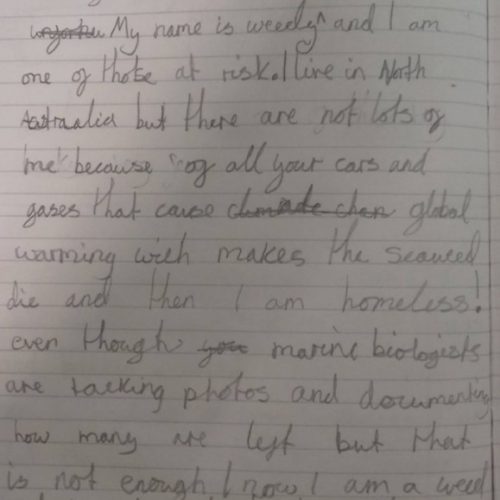 My name is weedy and I am
one of those at risk. I live in North
Astraalia but there are not lots of
me because of all your cars and
gases that cause climate chan global
warming wich makes the seaweed
die and then I am homeless!
even though you marine biologists
are tacking photos and documenting
how many are left but that
is not enough I now I am a weed